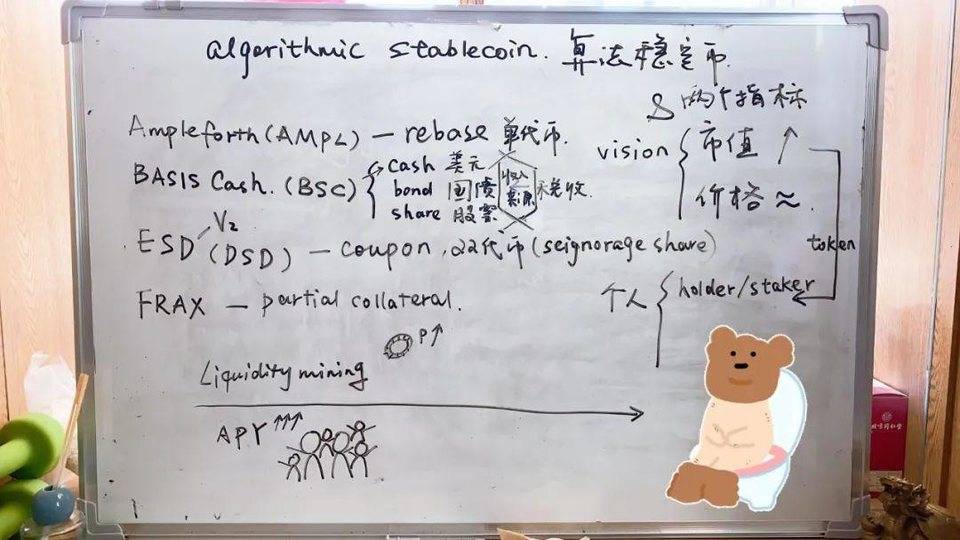 algorithmic stablecoin. 算法稳定币.
& 两个指标
Ampleforth (AMPL) — rebase 单代币.
BASIS Cash. (BSC)
cash 美元
bond 国债
share 股票
收入
来源
税收.
vision
市值 ↑
价格 ≈
token
ESD (DSD) — coupon, 22代币 (seignorage share)
V2
FRAX — partial collateral.
个人
holder/staker
P↑
Liquidity mining
APY ↑↑↑